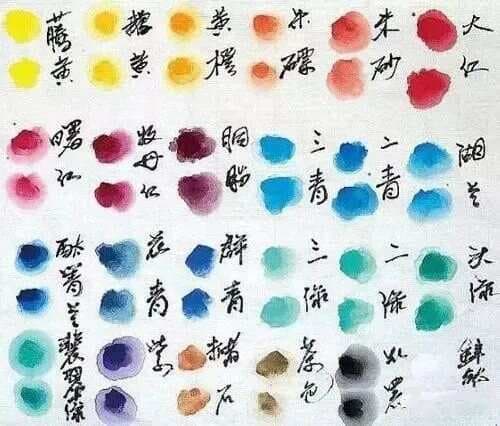 藤黄
橘黄
黄橙
朱磦
朱砂
大红
曙红
牡丹红
胭脂
三青
二青
湖兰
酞菁兰
花青
群青
三绿
二绿
头绿
翡翠绿
紫
赭石
茶色